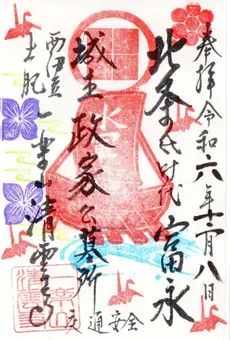 奉拝 令和六年十一月八日
北条氏時代 富永
城主 政家公墓所
西伊豆
土肥
清雲寺
交通安全